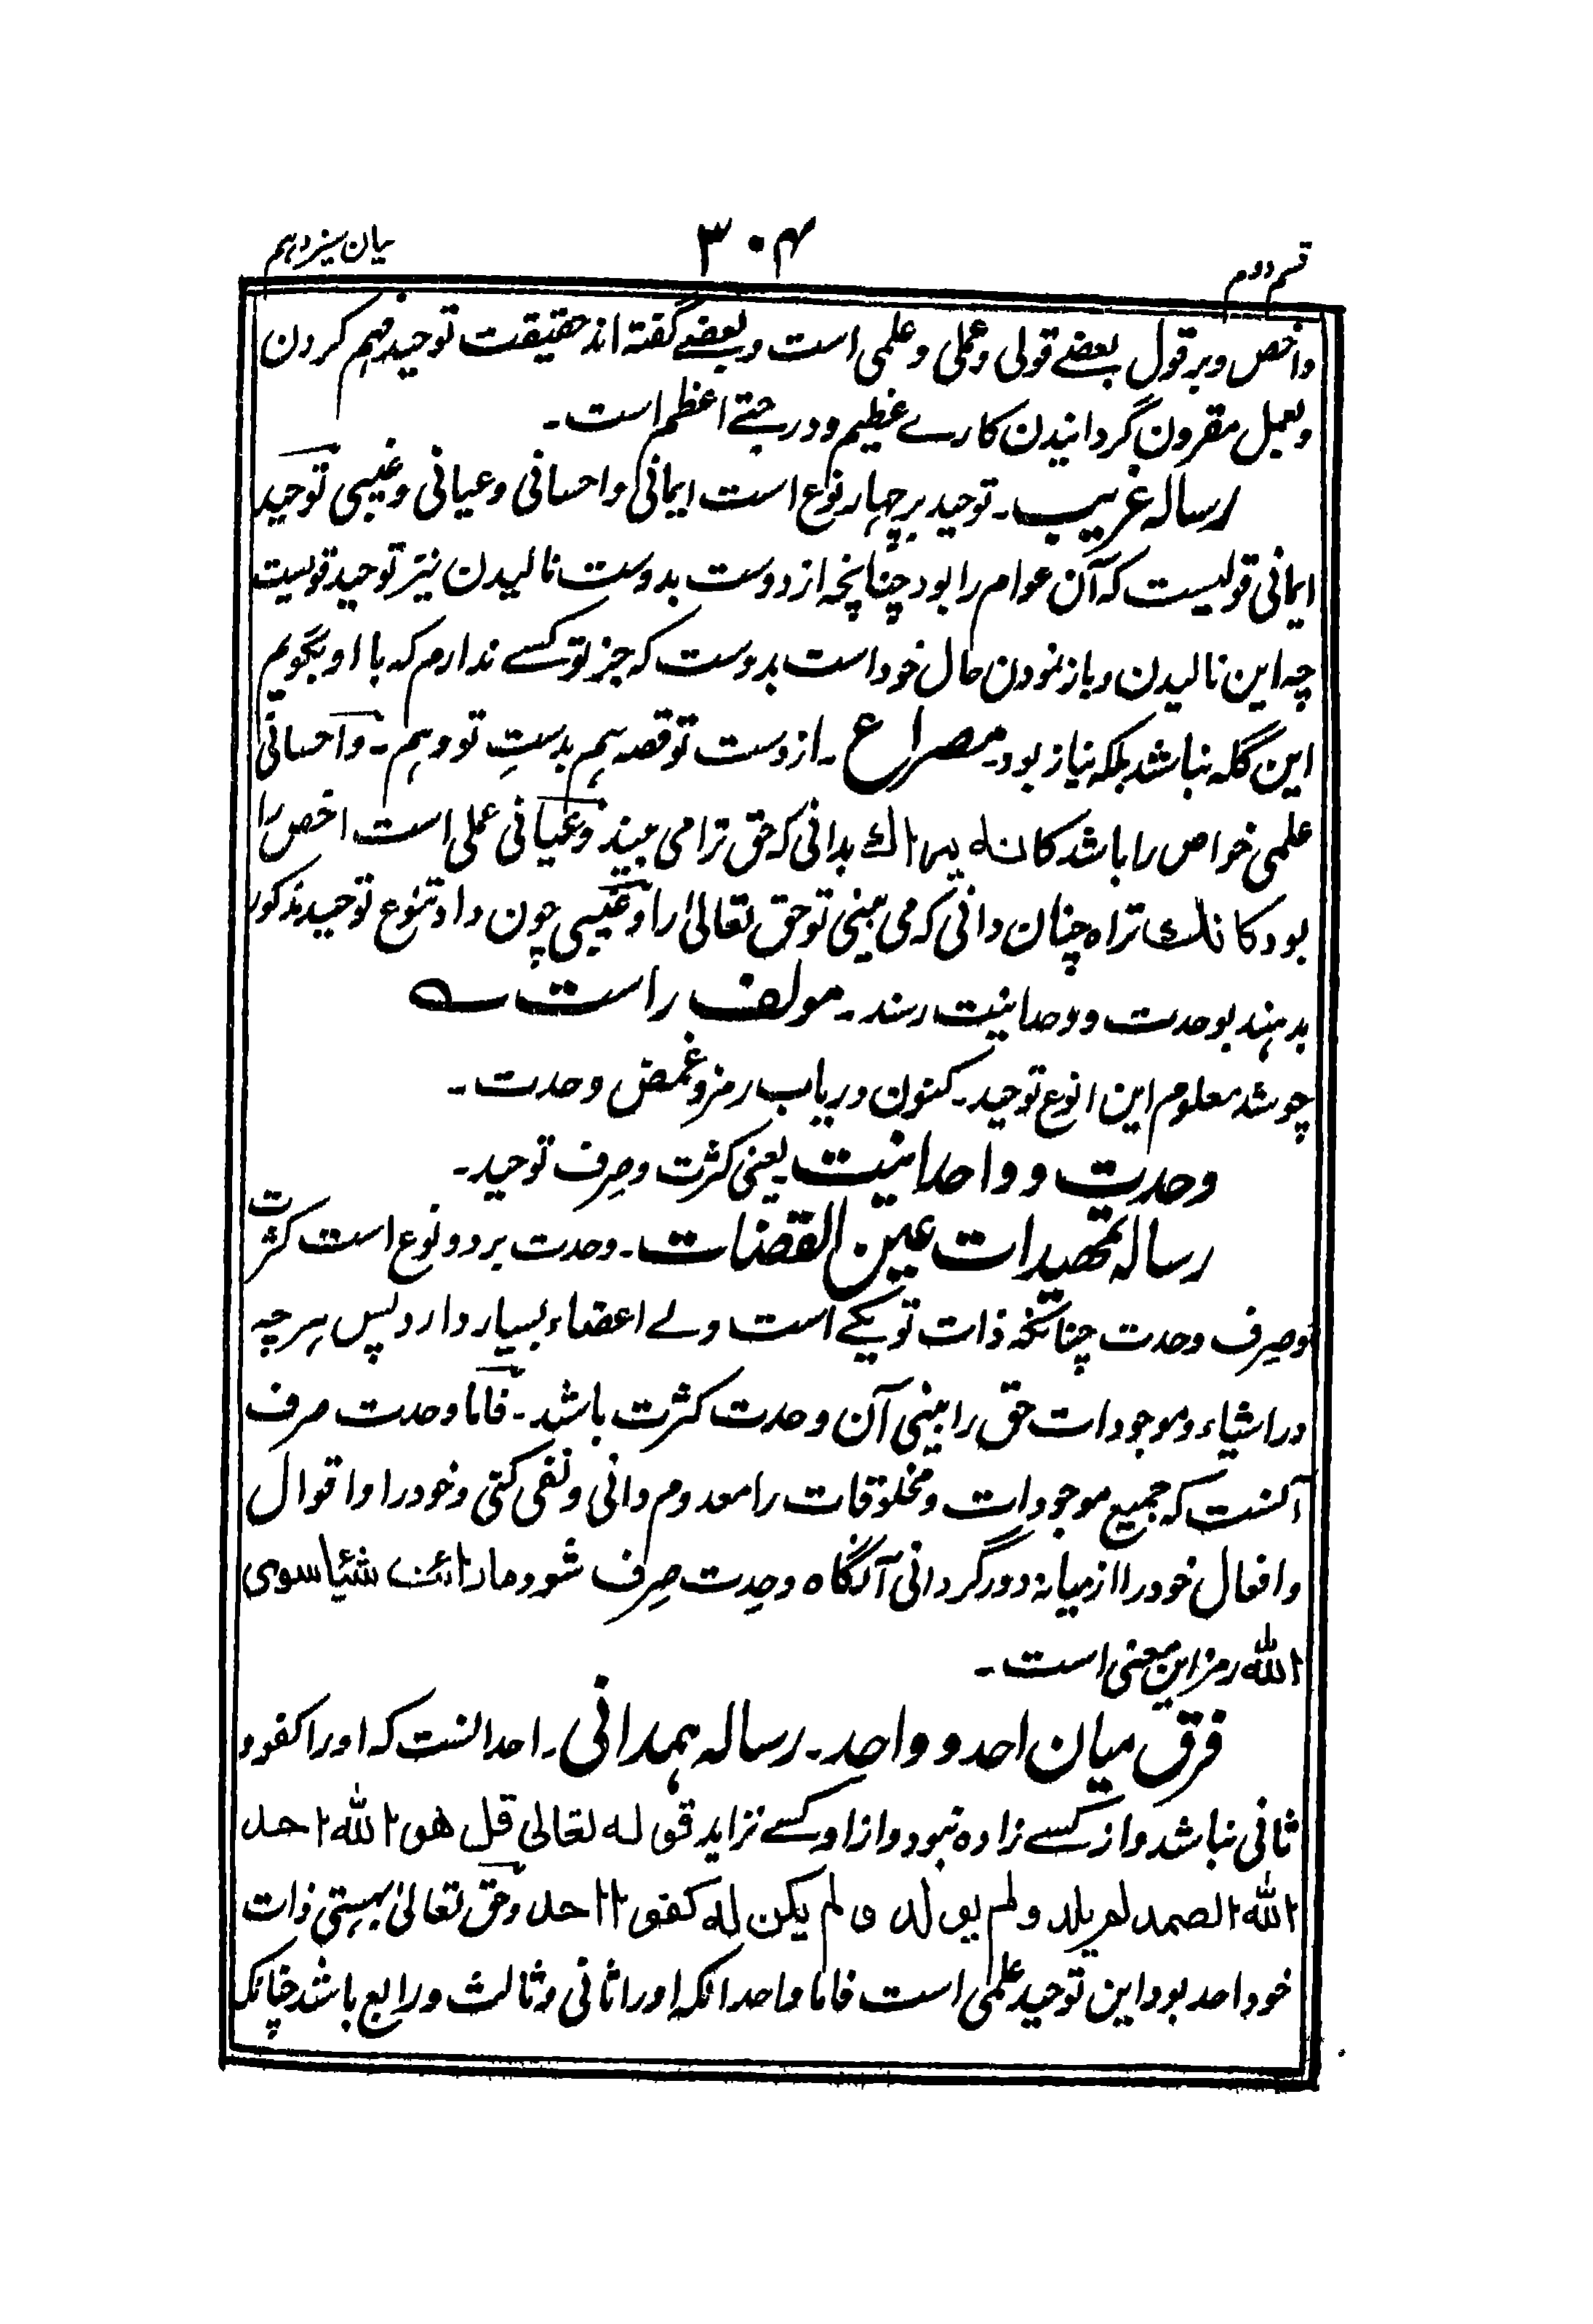 قسم دوم ۳۰۴ بیان سیزدهم
واخص وبر قول بعضے قولی وعملی وعلمی است وبعضے گفته اند حقیقت توحید فهم کردن
وبعمل مقرون گردانیدن کارے عظیم ودرجتے اعظم است۔
رساله غریب۔ توحید بر چهار نوع است ایمانی واحسانی وعیانی وغیبی توحید
ایمانی قولیست که آن عوام را بود چنانچه از دوست بدوست نالیدن نیز توحید قولیست
چه این نالیدن وباز نمودن حال خود است بدوست که جز تو کسے ندارم که با او بگویم
این گله نباشد بلکه نیاز بود۔ مصراع۔ از دست تو قصه هم بدستِ تو دهم۔ واحسانی
علمی خواص را باشد کانه یراك بدانی که حق ترا می بیند وعیانی عملی است اخص را
بود کانك تراه چنان دانی که می بینی تو حق تعالیٰ را وغیبی چون داد تنوع توحید مذکور
بدهند بوحدت ووحدانیت رسند۔ مولف راست
چو شد معلوم این انوع توحید۔ کنون دریاب رمز وغمض وحدت۔
وحدت وواحدانیت یعنی کثرت وصِرف توحید۔
رساله تمهیدات عین القضات۔ وحدت بر دو نوع است کثرت
وصِرف وحدت چنانکه ذات تو یکے است ولے اعضاء بسیار دارد پس هر چه
در اشیاء وموجودات حق را بینی آن وحدت کثرت باشد۔ فاما وحدت صرف
آنست که جمیع موجودات ومخلوقات را معدوم دانی ونفی کنی وخود را واقوال
وافعال خود را از میانه دور گردانی آنگاه وحدت صِرف شود ما رائت شیئا سوی
الله رمز این معنی است۔
فرق میان احد وواحد۔ رساله همدانی۔ احد آنست که او را کفو و
ثانی نباشد واز کسے زاده نبود واز او کسے نزاید قوله تعالی قل هو الله احد
الله الصمد لم یلد ولم یولد ولم یکن له کفوا احد وحق تعالیٰ بهستی ذات
خود احد بود این توحید علمی است فاما واحد آنکه او را ثانی وثالث ورابع باشد چنانکه